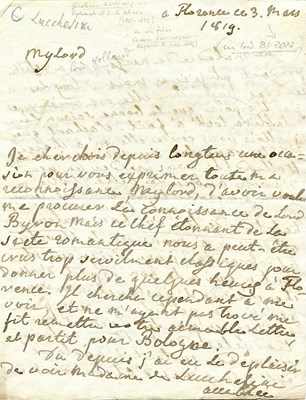 Lucchesini
a Florence ce 3. Mars
1819.
sur lord BYRON
Mylord
Lord Holland
Je cherchois depuis longtems une occa-
sion pour vous exprimer toute ma
reconnoissance Mylord, d'avoir voulu
me procurer la connoissance de Lord
Byron. Mais ce chef étonnant de la
secte romantique nous a peut-être
crus trop servilment classiques pour
donner plus de quelques heures à Flo-
rence. Il chercha cependant à me
voir et ne m'ayant pas trouvé me
fit remettre votre aimable lettre
et partit pour Bologne.
Du depuis j'ai eu le deplaisir
de voir Madame de Lucchesini